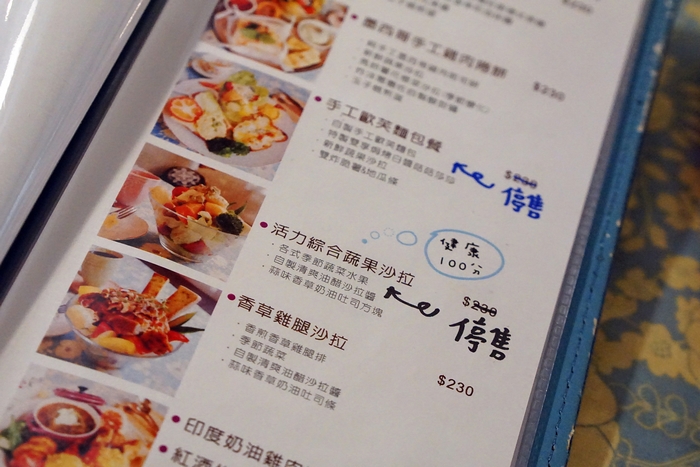 墨西哥手工雞肉捲餅
$230
手工歐芙麵包餐
自製手工歐芙麵包
新鮮蔬果沙拉
雙炸脆薯&地瓜條
停售
健康
100分
活力綜合蔬果沙拉
各式季節蔬菜水果
自製清爽油醋沙拉醬
蒜味香草奶油吐司方塊
$230
停售
香草雞腿沙拉
香煎香草雞腿排
季節蔬菜
自製清爽油醋沙拉醬
蒜味香草奶油吐司條
$230
印度奶油雞肉
紅酒